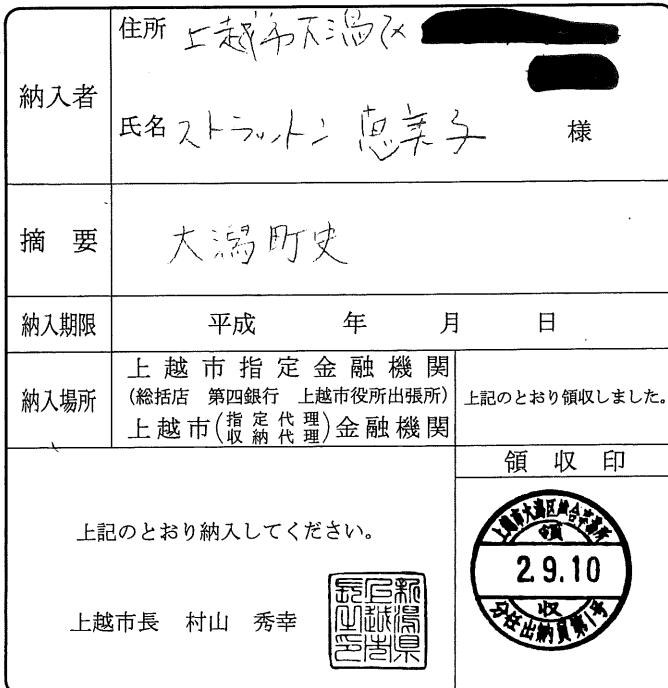 納入者
住所 上越市大潟区
氏名 ストラットン 恵美子 様
摘要 大潟町史
納入期限 平成 年 月 日
納入場所
上越市指定金融機関
(総括店 第四銀行 上越市役所出張所)
上越市(指定代理 収納代理)金融機関
上記のとおり領収しました。
上記のとおり納入してください。
上越市長 村山 秀幸
新潟県上越市長之印
領収印
上越市大潟区総合事務所
領
2.9.10
収
分任出納員第1号